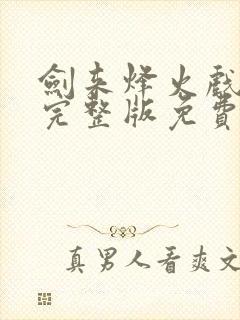 劍来烽火戲
完整版免費
真男人看爽文